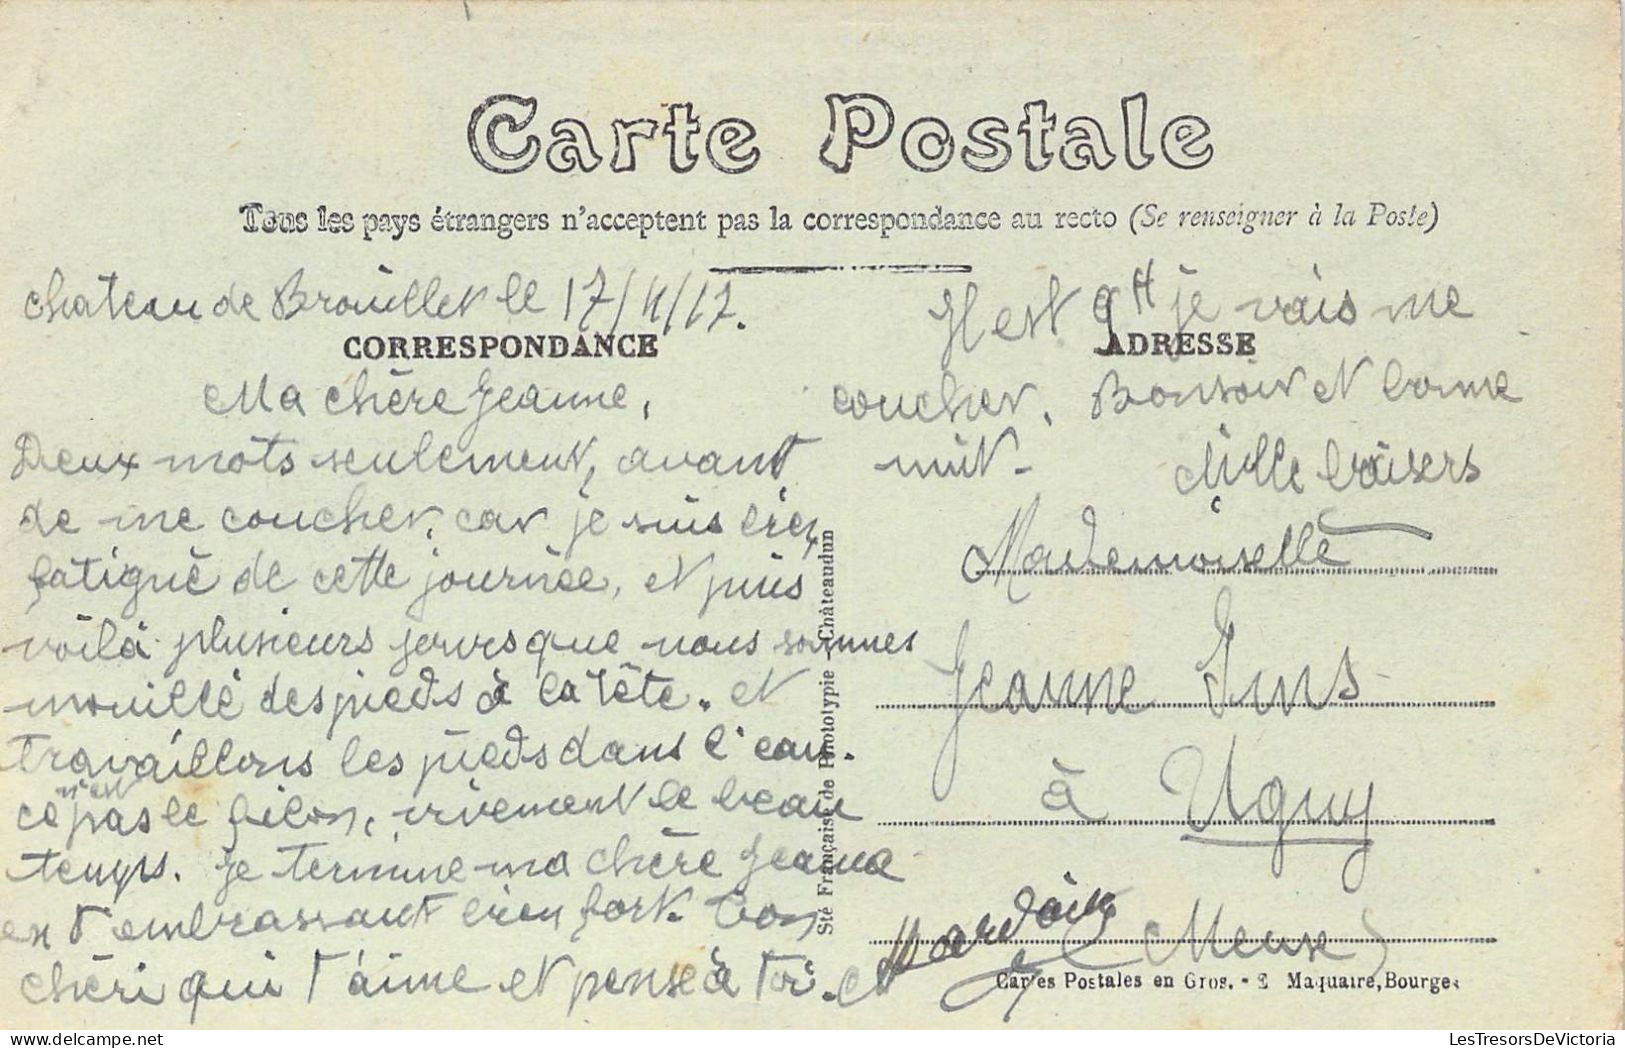 Carte Postale
Tous les pays étrangers n'acceptent pas la correspondance au recto (Se renseigner à la Poste)
Chateau de Brouillet le 17/4/17.
CORRESPONDANCE
Ma chère Jeanne,
Deux mots seulement, avant
de me coucher, car je suis bien
fatiguè de cette journèe, et puis
voilà plusieurs jours que nous sommes
mouillé des pieds à la tête. et
travaillons les pieds dans l'eau.
ce n'est pas le filon, vivement le beau
temps. Je termine ma chère Jeanne
en t'embrassant bien fort. Ton
chéri qui t'aime et pense à toi. et
Il est 9H je vais me
ADRESSE
coucher. Bonsoir et bonne
nuit. Mille baisers
Mademoiselle
Jeanne
à Ugny
(Meuse)
Sté Française de Phototypie, Châteaudun
Cartes Postales en Gros. - E Maquaire, Bourges
LesTresorsDeVictoria